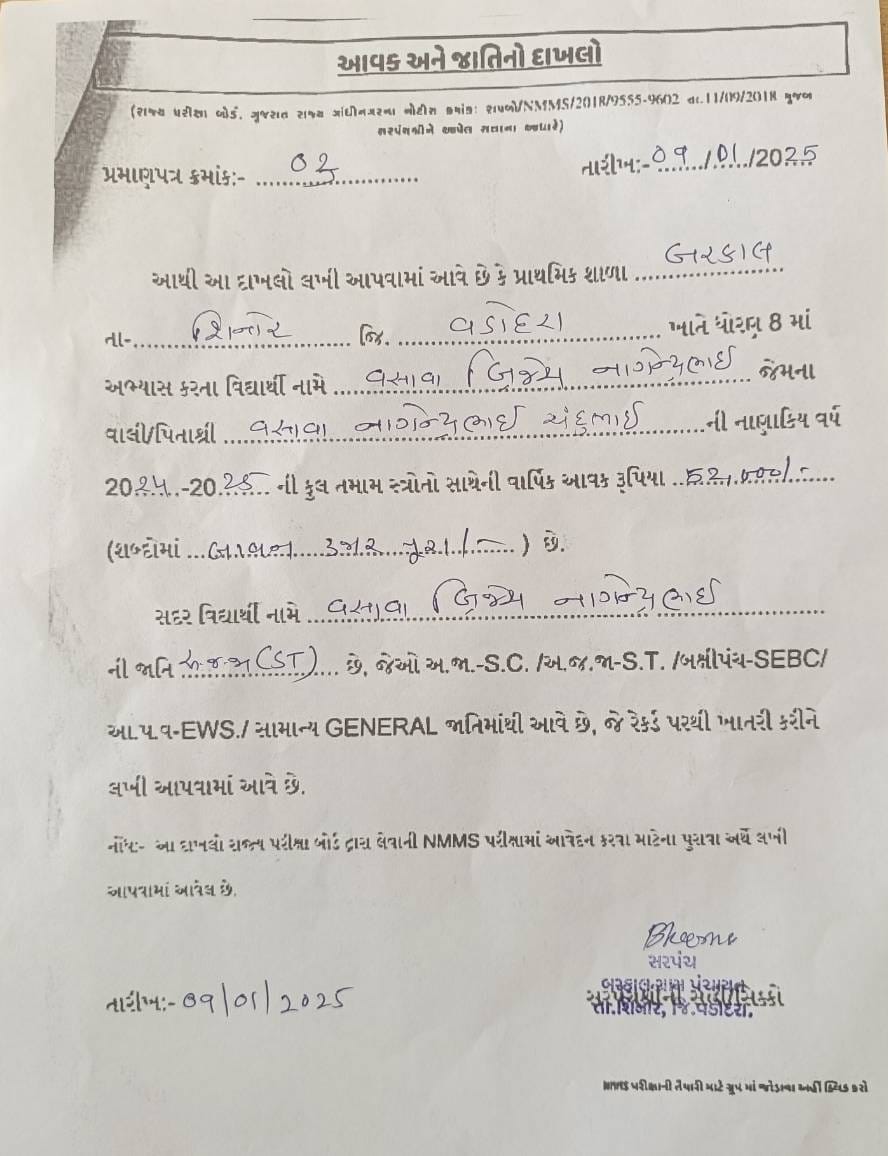 આવક અને જાતિનો દાખલો
(રાજ્ય પરીક્ષા બોર્ડ, ગુજરાત રાજ્ય ગાંધીનગરના નોટીસ ક્રમાંક: રાપબો/NMMS/2018/9555-9602 તા.11/09/2018 મુજબ
સરપંચશ્રીને આપેલ સત્તાના આધારે)
પ્રમાણપત્ર ક્રમાંક:- 02
તારીખ:- 09/01/2025
આથી આ દાખલો લખી આપવામાં આવે છે કે પ્રાથમિક શાળા બરકાલ
તા-. શિનોર જિ. વડોદરા ખાતે ધોરણ 8 માં
અભ્યાસ કરતા વિદ્યાર્થી નામે વસાવા જેમના
વાલી/પિતાશ્રી વસાવા ચંદુભાઈ ની નાણાકિય વર્ષ
2024-2025 ની કુલ તમામ સ્ત્રોતો સાથેની વાર્ષિક આવક રૂપિયા 52,000/-
(શબ્દોમાં બાવન હજાર પૂરા/-) છે.
સદર વિદ્યાર્થી નામે વસાવા
ની જાતિ અ.જ.જા (ST) છે, જેઓ અ.જા.-S.C. /અ.જ.જા-S.T. /બક્ષીપંચ-SEBC/
આ.પ.વ-EWS./ સામાન્ય GENERAL જાતિમાંથી આવે છે, જે રેકર્ડ પરથી ખાતરી કરીને
લખી આપવામાં આવે છે.
નોંધ:- આ દાખલો રાજ્ય પરીક્ષા બોર્ડ દ્વારા લેવાની NMMS પરીક્ષામાં આવેદન કરવા માટેના પુરાવા અર્થે લખી
આપવામાં આવેલ છે.
સરપંચ
બરકાલ ગ્રામ પંચાયત
તારીખ:- 09/01/2025
સરપંચશ્રીની સહી/સિક્કો
તા.શિનોર, જિ.વડોદરા.
NMMS પરીક્ષાની તૈયારી માટે ગ્રુપ માં જોડાવા અહીં ક્લિક કરો